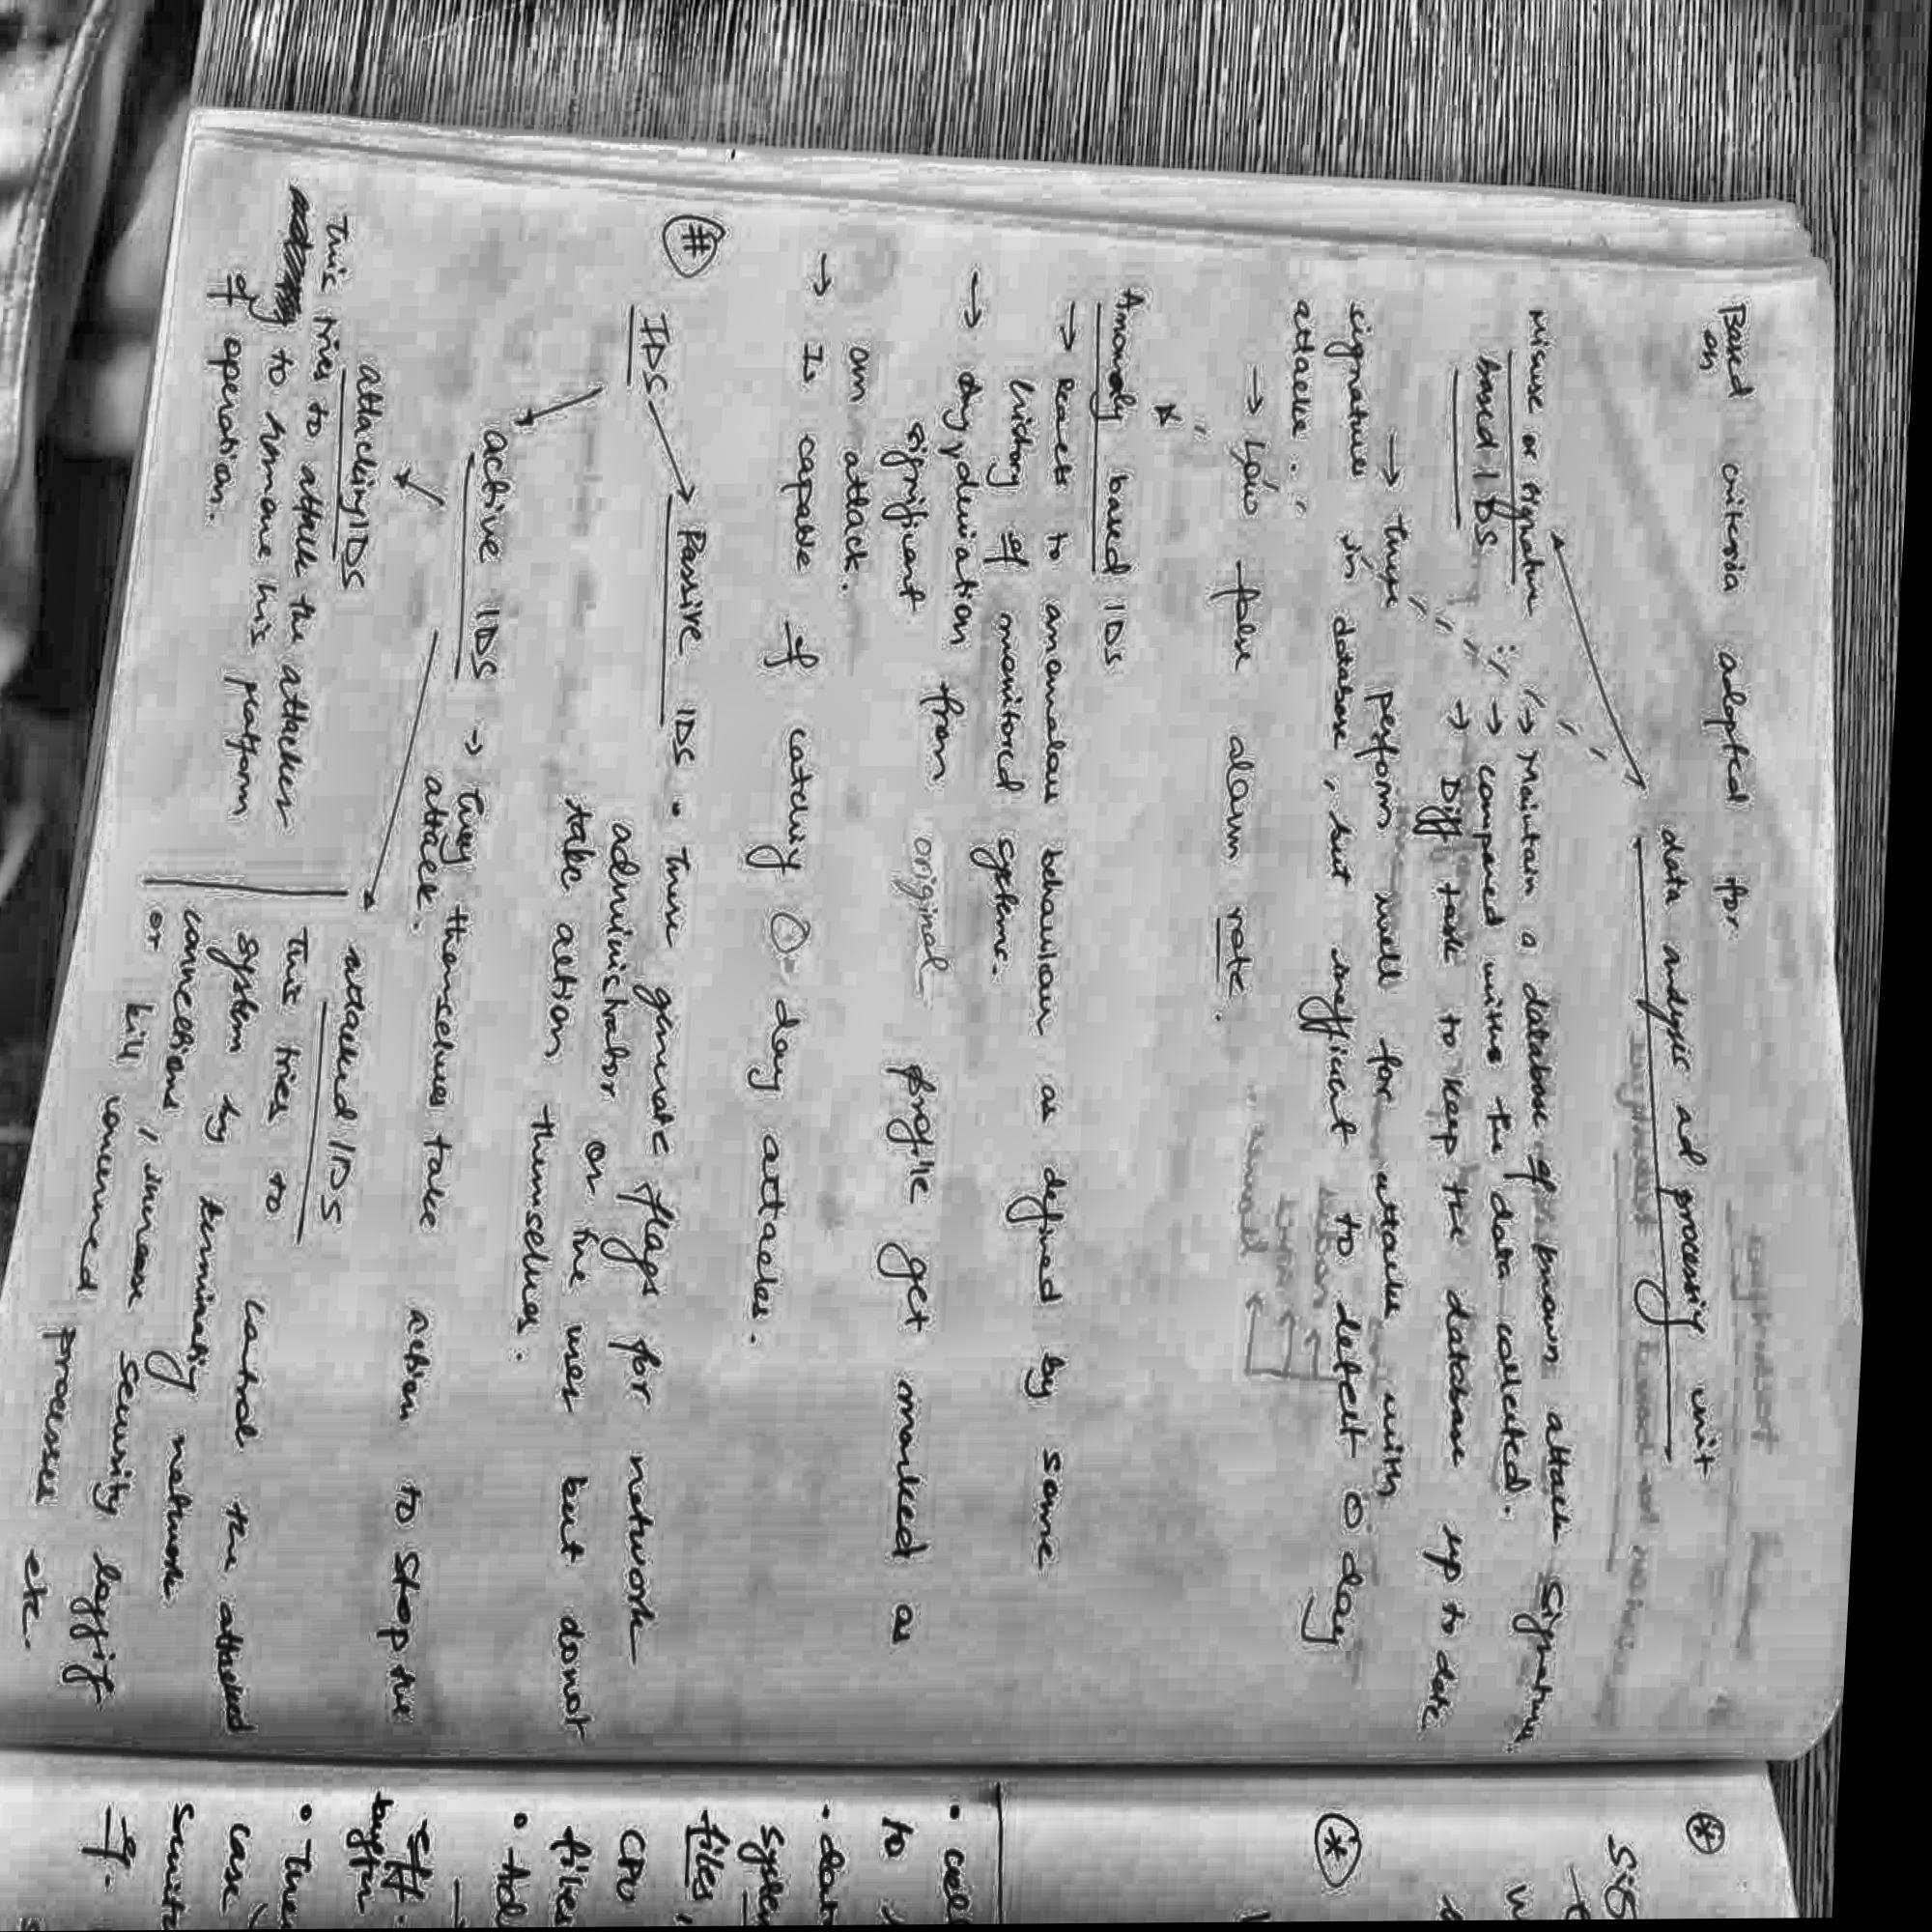 Based criteria adopted for
on
data analysis ad processing unit
Misuse or signature
based IDS
→ Maintain a database of known attack signature
→ compared withe the data collected.
→ Diff task to keep the database up to date
→ these perform well for attacks with
signatures in database, but inefficient to detect 0 day
attacks.
→ Low false alarm rate.
Anomaly based IDS
→ Reacts to anomalous behaviour as defined by some
history of monitored systems.
→ Any deviation from original profile get marked as
significant
an attack.
→ Is capable of catchig 0-day attacks.
#
IDS → Passive IDS • These generate flags for network
administrator or the user but donot
take action themselves.
active IDS → They themselves take action to stop the
attack.
attacking IDS
This tries to attack the attacker
to remove his platform
of operation.
attacked IDS
This tries to control the attacked
system by terminatig network
connections, increase security
or kill concerned processes etc.
*
Sig
*
• coll
to
• dat
system
files,
CPU
files
• Ad
eff.
• These
case